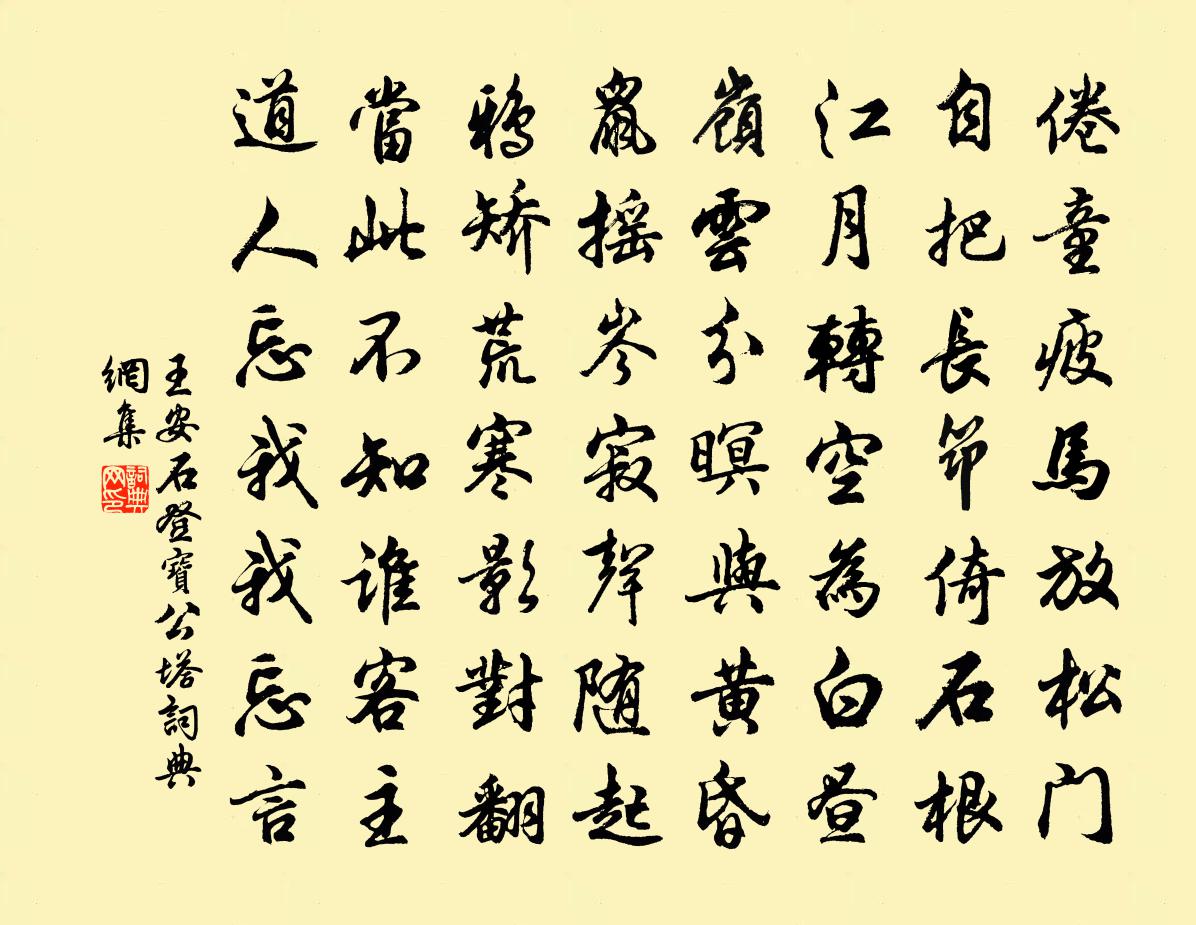 倦童疲馬放松门
自把長笻倚石根
江月轉空為白昼
嶺雲分暝與黄昏
鼠摇岑寂聲随起
鴉矯荒寒影對翻
當此不知谁客主
道人忘我我忘言
王安石登寶公塔詞典
網集
詞典
网印